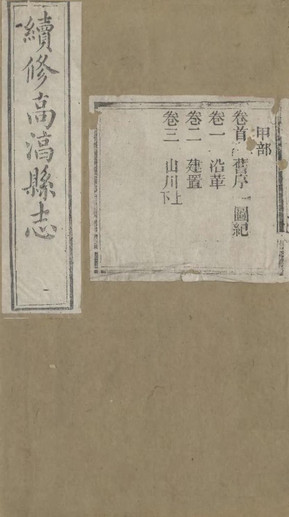 續修高淳縣志
一
甲部
卷首 舊序 圖紀
卷一 沿革
卷二 建置
卷三 山川上下